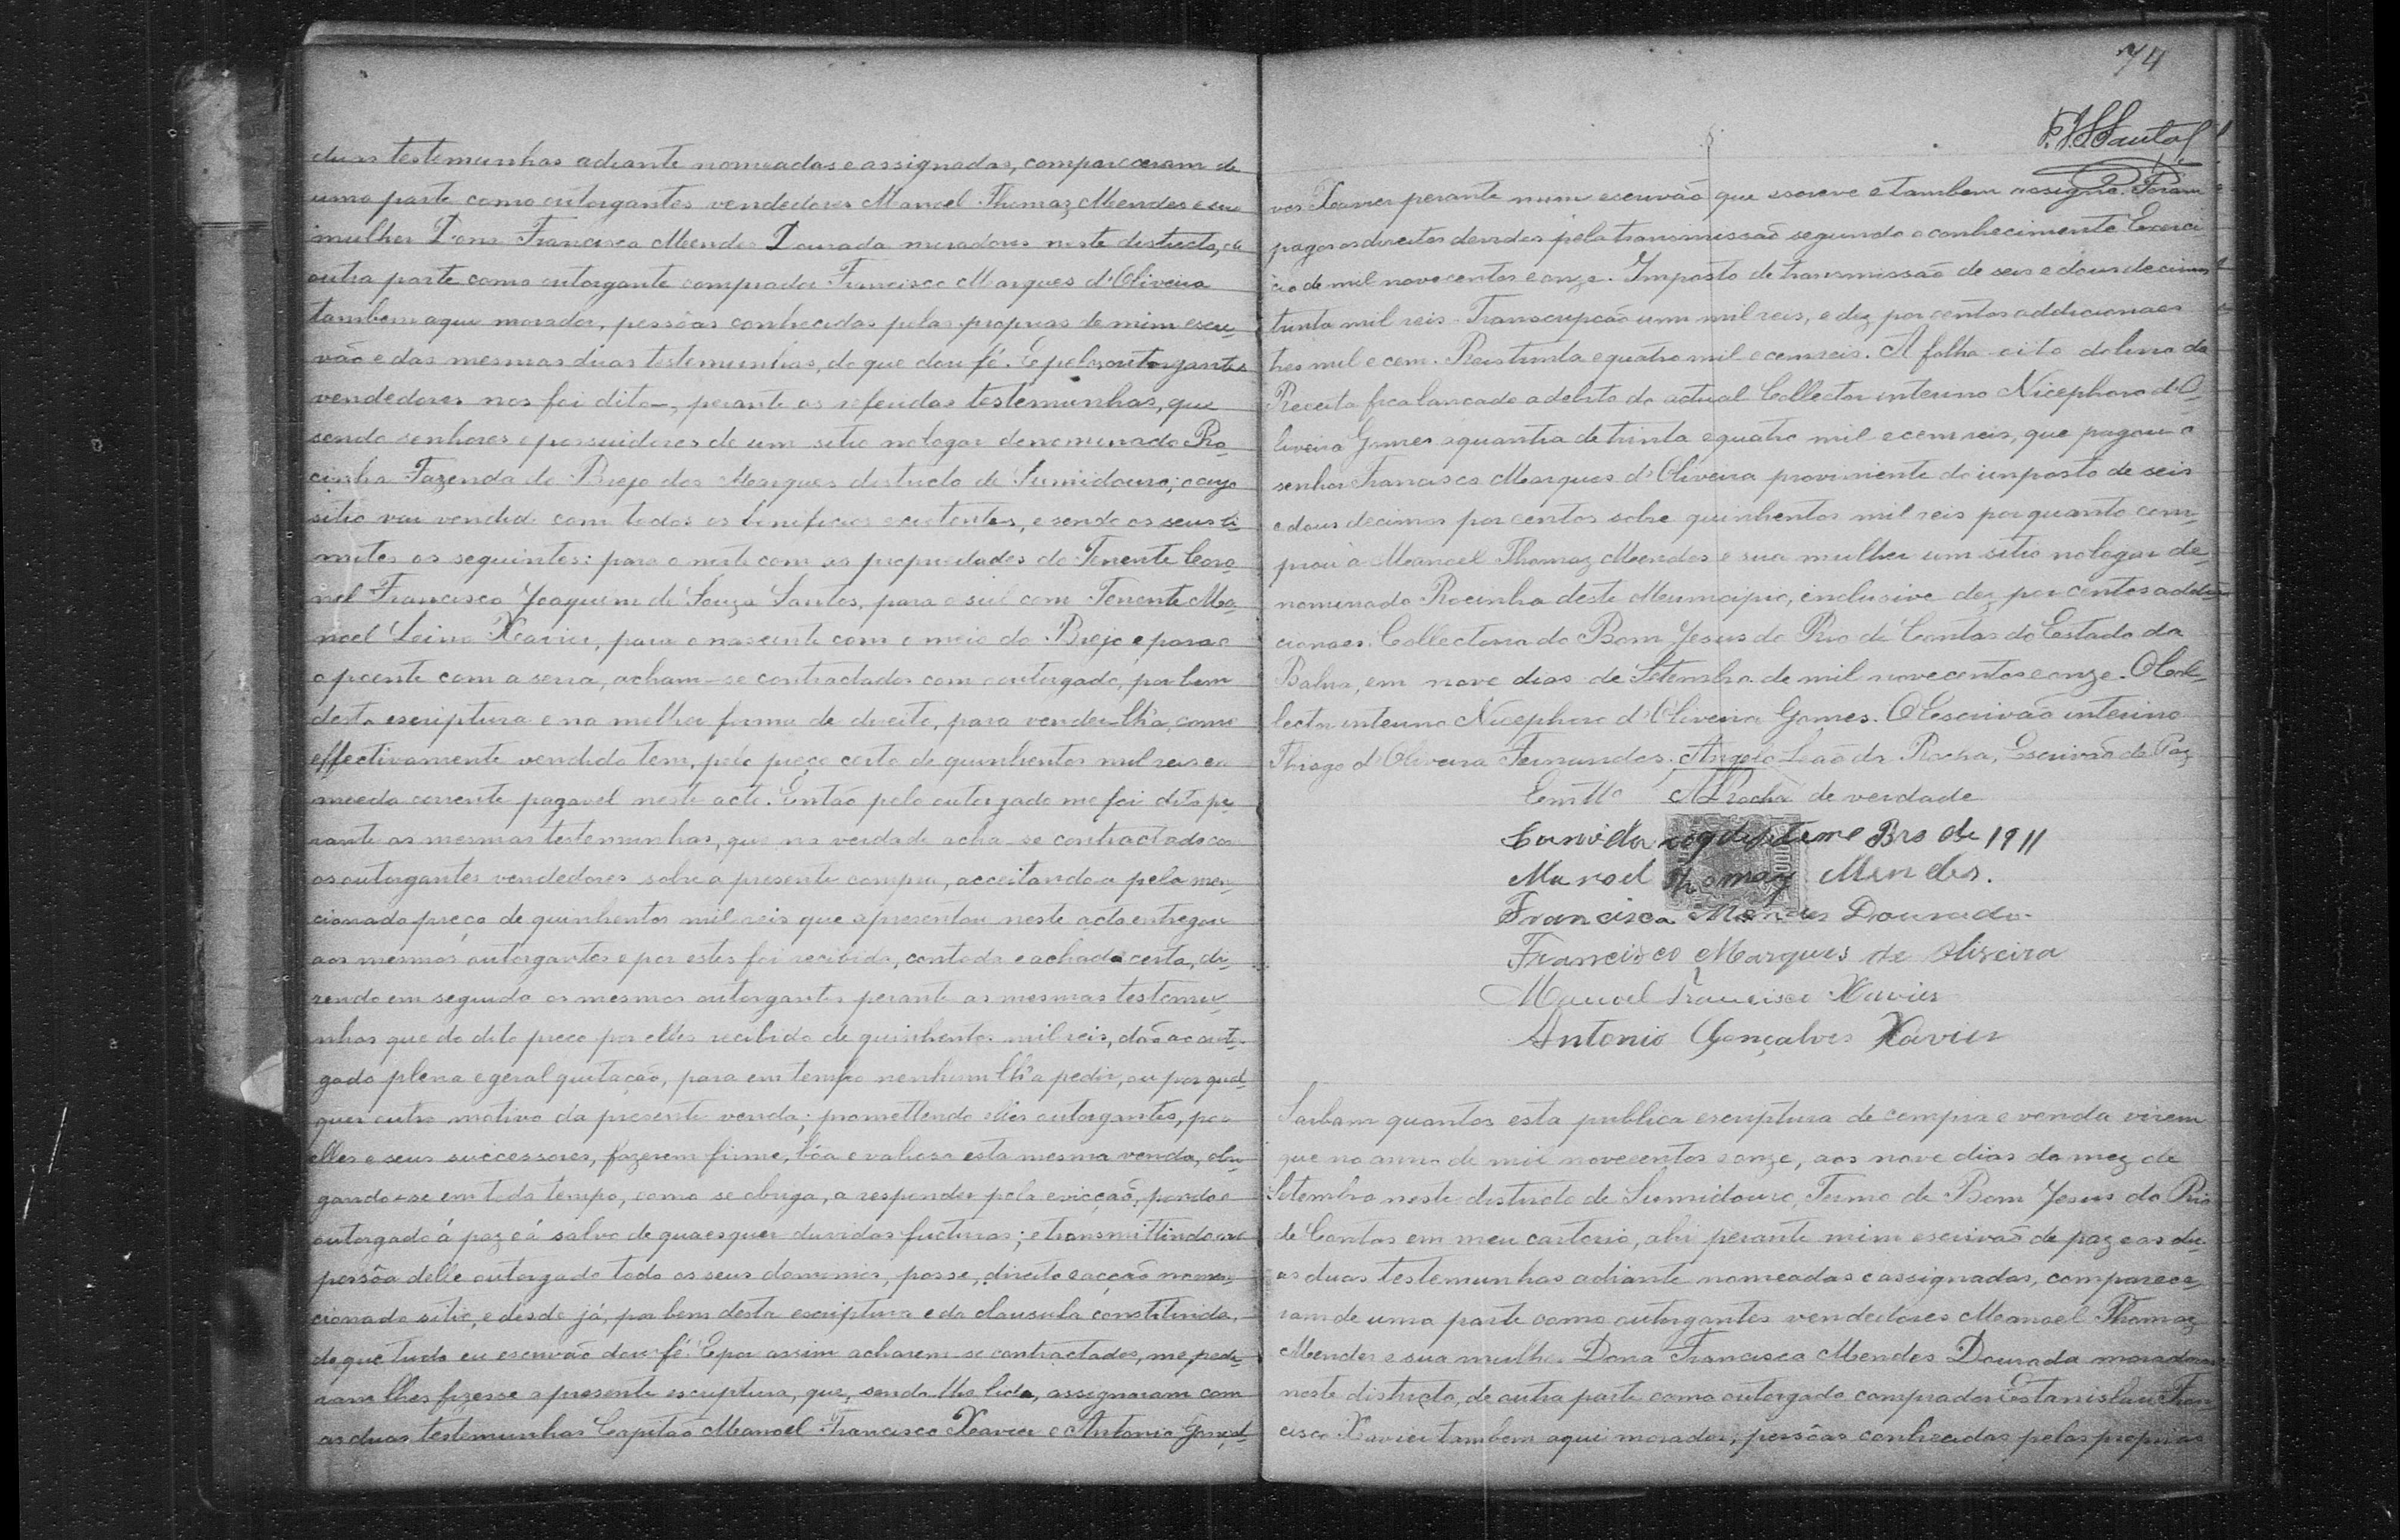 duas testemunhas adiante nomeadas e assignadas, compareceram de
uma parte como outorgantes vendedores Manoel Thomaz Mendes e sua
mulher Dona Francisca Mendes Dourada moradores neste districto, de
outra parte como outorgante comprador Francisco Marques d'Oliveira
tambem aqui morador, pessôas conhecidas pelas proprias de mim escri-
vão e das mesmas duas testemunhas, do que dou fé. E pelos outorgantes
vendedores nos foi dito, perante as referidas testemunhas, que
sendo senhores e possuidores de um sitio no logar denominado Ro-
cinha Fazenda do Brejo dos Marques districto de Sumidouro; cujo
sitio vai vendido com todos os beneficios existentes, e sendo os seus li-
mites os seguintes: para o norte com as propriedades do Tenente Coro-
nel Francisco Joaquim de Souza Santos, para o sul com Tenente Ma-
noel Xavier, para o nascente com o meio do Brejo e para o
o poente com a serra, acham-se contractados com o outorgado, por bem
desta escriptura e na melhor forma de direito, para vender-lh'a, como
effectivamente vendido tem, pelo preço certo de quinhentos mil reis em
moeda corrente pagavel neste acto. Então pelo outorgado me foi dito pe-
rante as mesmas testemunhas, que na verdade acha-se contractado com
os outorgantes vendedores sobre a presente compra, acceitando-a pelo men-
cionado preço de quinhentos mil reis que apresentou neste acto entregou
aos mesmos outorgantes e por estes foi recebida, contada e achada certa, di-
zendo em seguida os mesmos outorgantes perante as mesmas testemu-
nhas que do dito preço por elles recebido de quinhentos mil reis, dão ao outor-
gado plena e geral quitação, para em tempo nenhum lh'a pedir, ou por qual-
quer outro motivo da presente venda; promettendo elles outorgantes, por
elles e seus successores, fazerem firme, bôa e valiosa esta mesma venda, obri-
gando-se em todo tempo, como se obriga, a responder pela evicção, pondo o
outorgado á paz e á salvo de quaesquer duvidas futuras; e transmittindo na
pessôa delle outorgado todo os seus dominios, posse, direito e acção no men-
cionado sitio, e desde já, por bem desta escriptura e da clausula constituida,
do que tudo eu escrivão dou fé. E por assim acharem-se contractados, me pedi-
ram lhes fizesse a presente escriptura, que, sendo-lhe lida, assignaram com
as duas testemunhas Capitão Manoel Francisco Xavier e Antonio Gonçal-
74
F. J. S. Santos
ves Xavier perante mim escrivão que escreve e tambem assigna. Foram
pagos os direitos devidos pela transmissão segundo o conhecimento Exerci-
cio de mil novecentos e onze. Imposto de transmissão de seis e dous decimos
trinta mil reis. Transcripção um mil reis, e dez por centos addicionaes
tres mil e cem. Reis trinta e quatro mil e cem reis. A folha oito do livro da
Receita fica lançado a debito do actual Collector interino Nicephoro d'O-
liveira Gomes a quantia de trinta e quatro mil e cem reis, que pagou o
senhor Francisco Marques d'Oliveira proviniente do imposto de seis
e dous decimos por centos sobre quinhentos mil reis por quanto com-
prou a Manoel Thomaz Mendes e sua mulher um sitio no logar de-
nominado Rocinha deste Municipio, inclusive dez por centos addi-
cionaes. Collectoria do Bom Jesus do Rio de Contas do Estado da
Bahia, em nove dias de Setembro de mil novecentos e onze. O Col-
lector interino Nicephoro d'Oliveira Gomes. O Escrivão interino
Thiago d'Oliveira Fernandes. Angelo Leão da Rocha, Escrivão de Paz
Em tto ALRocha de verdade
de 1911
Manoel Thomaz Mendes.
Francisca Mendes Dourado.
Francisco Marques de Oliveira
Manoel Francisco Xavier
Antonio Gonçalves Xavier
Saibam quantos esta publica escriptura de compra e venda virem
que no anno de mil novecentos e onze, aos nove dias do mez de
Setembro neste districto de Sumidouro, Termo de Bom Jesus do Rio
de Contas em meu cartorio, ahi perante mim escrivão de paz e as du-
as duas testemunhas adiante nomeadas e assignadas, comparece-
ram de uma parte como outorgantes vendedores Manoel Thomaz
Mendes e sua mulher Dona Francisca Mendes Dourada moradores
neste districto, de outra parte como outorgado comprador Estanislau Fran-
cisco Xavier tambem aqui morador, pessôas conhecidas pelas proprias